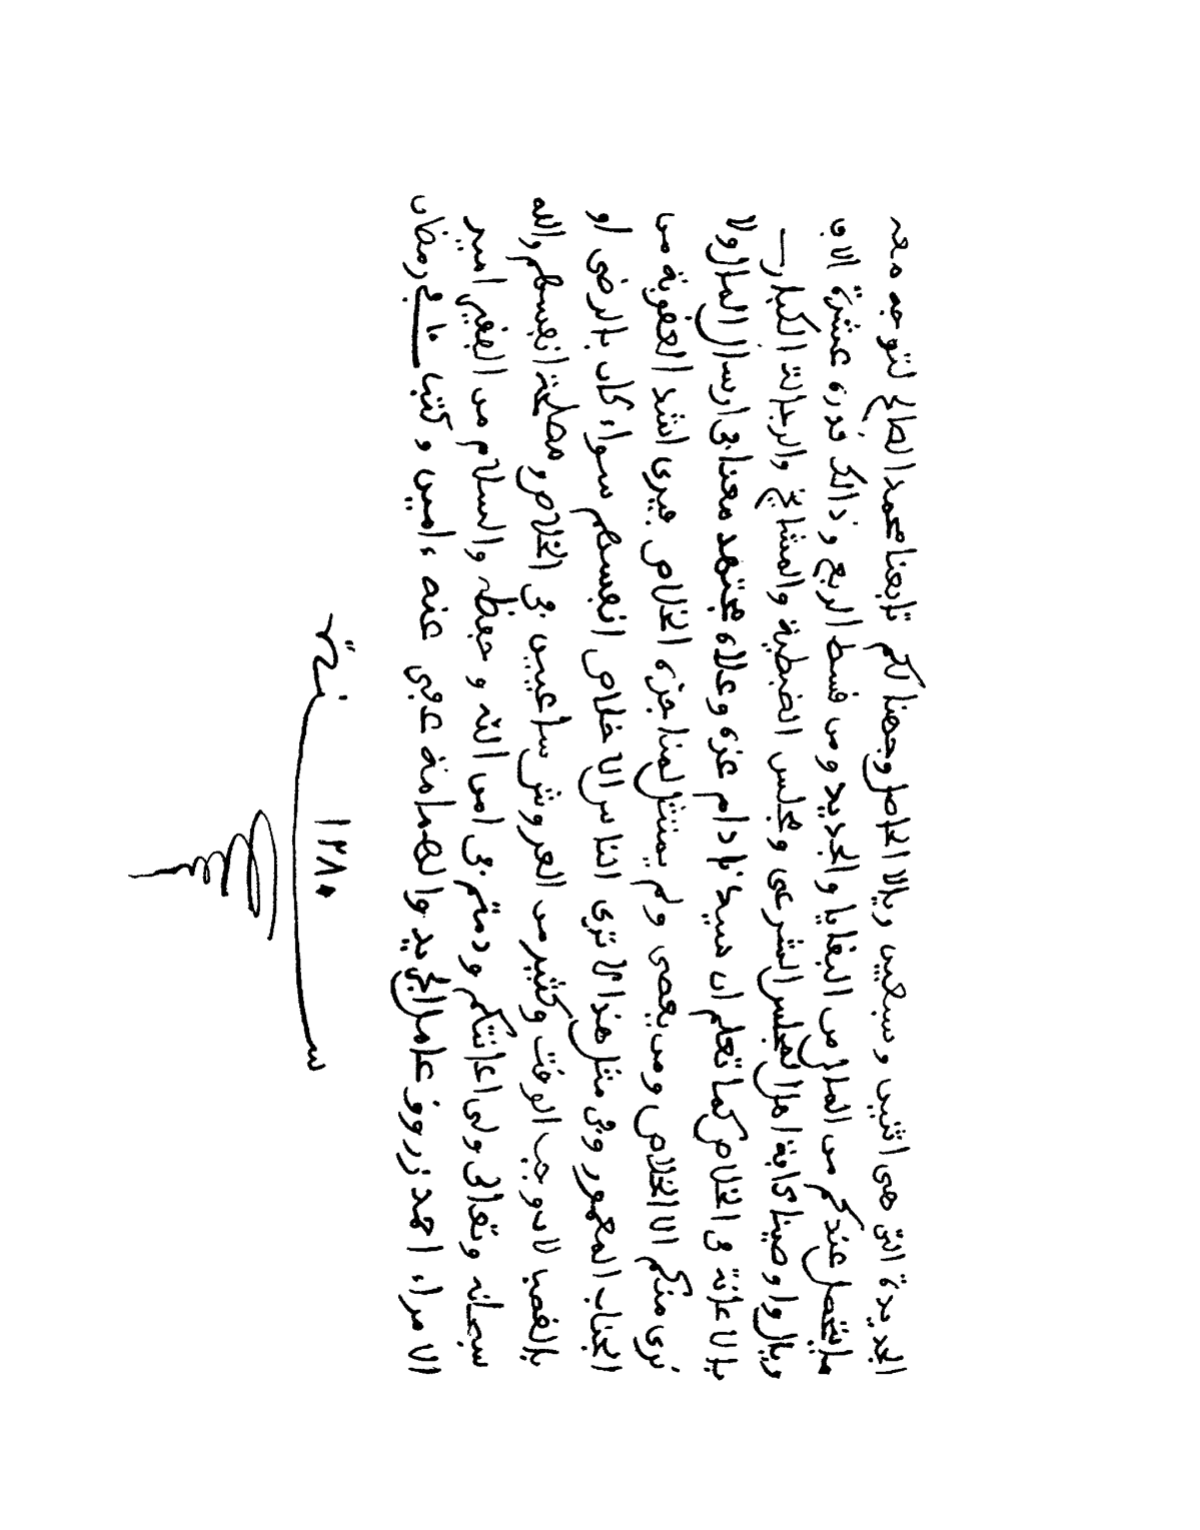 الجديدة التي هي اثنين وسبعين ريالا الحاصل وجهنا لكم تابعنا محمد الصالح لتوجه معه
ما يتحصل عندكم من المال من البقايا والجديد ومن قسط الربع وذالك قدره عشرة الاف
ريال واوصينا كافة اهل المجلس الشرعي ومجلس الضبطية والمشايخ والرجالة الكبار
بالاعانة في الخلاص كما تعلم ان سيدنا دام عزه وعلاه مجتهد معنا في ارسال المال ولا
نرى منكم الا الخلاص ومن يعصى ولم يمتثل لمنا جزه الخلاص فيرى اشد العقوبة من
الجناب المعمور وفي مثل هذا لا ترى الناس الا خلاص انفسهم سواء كان بالرضى او
بالغصبا لا سيما الوقت وكثير من العروش ساعيين في الخلاص ومصلحة انفسهم والله
سبحانه وتعالى ولى اعانتكم ودمتم في امن الله وحفظه والسلام من الفقير امير
الامراء احمد زروق عامل الجريد والهمامة عفي عنه ءامين وكتب في رمضان
سنة ١٢٨٠